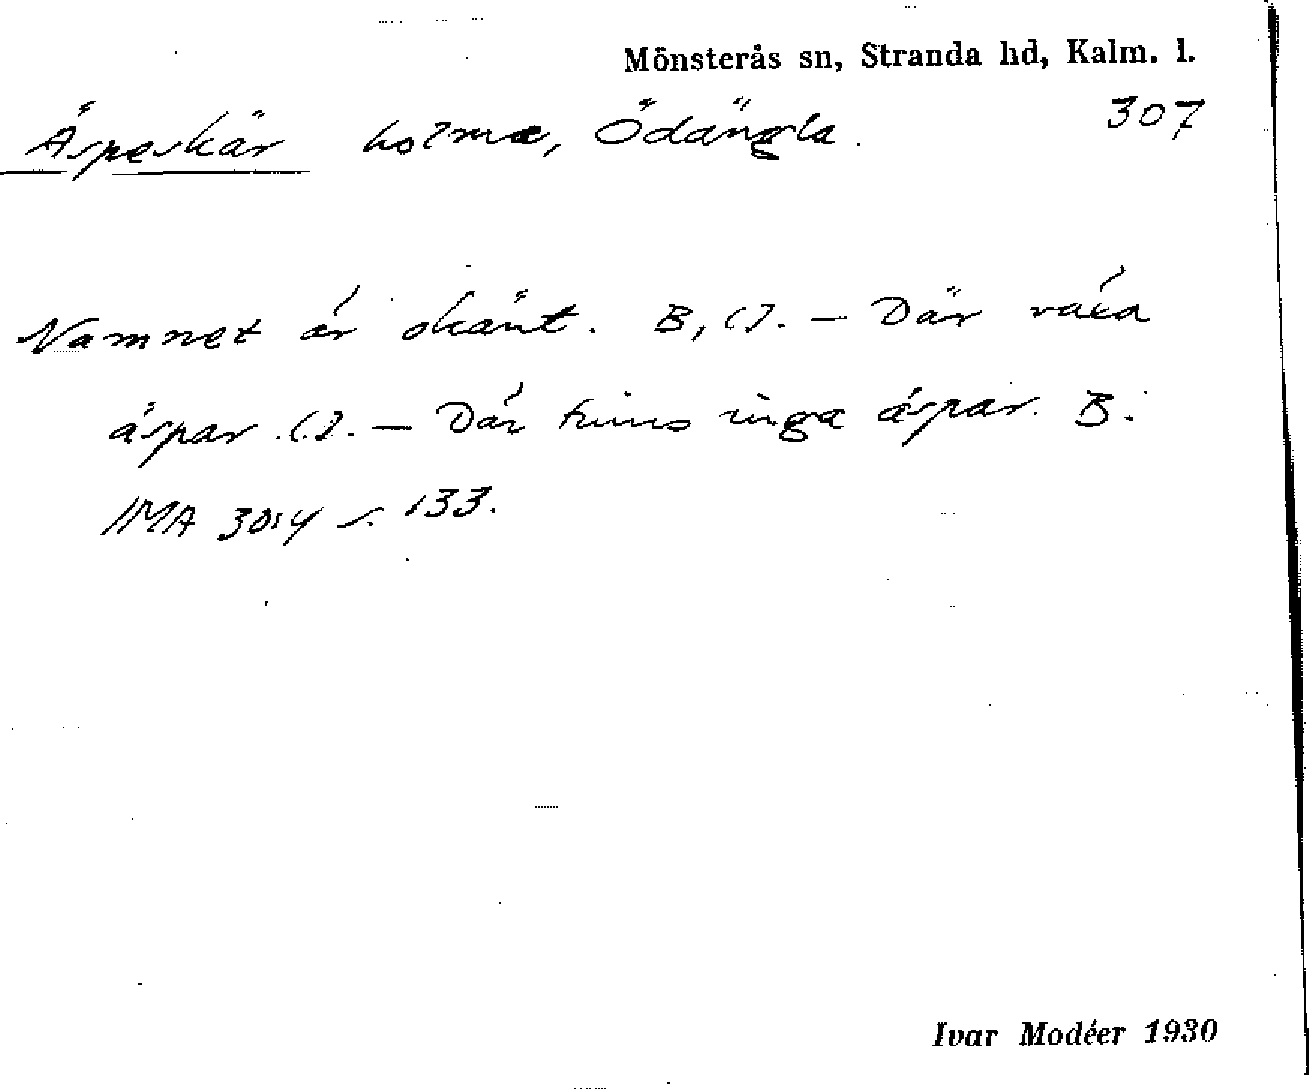 Mönsterås sn, Stranda hd, Kalm. l.
Äspeskär holme, Ödängla. 307
Namnet är okänt. B, CJ. — Där växa
äspar. CJ. — Där finns inga äspar. B.
IMA 3014 s. 133.
Ivar Modéer 1930